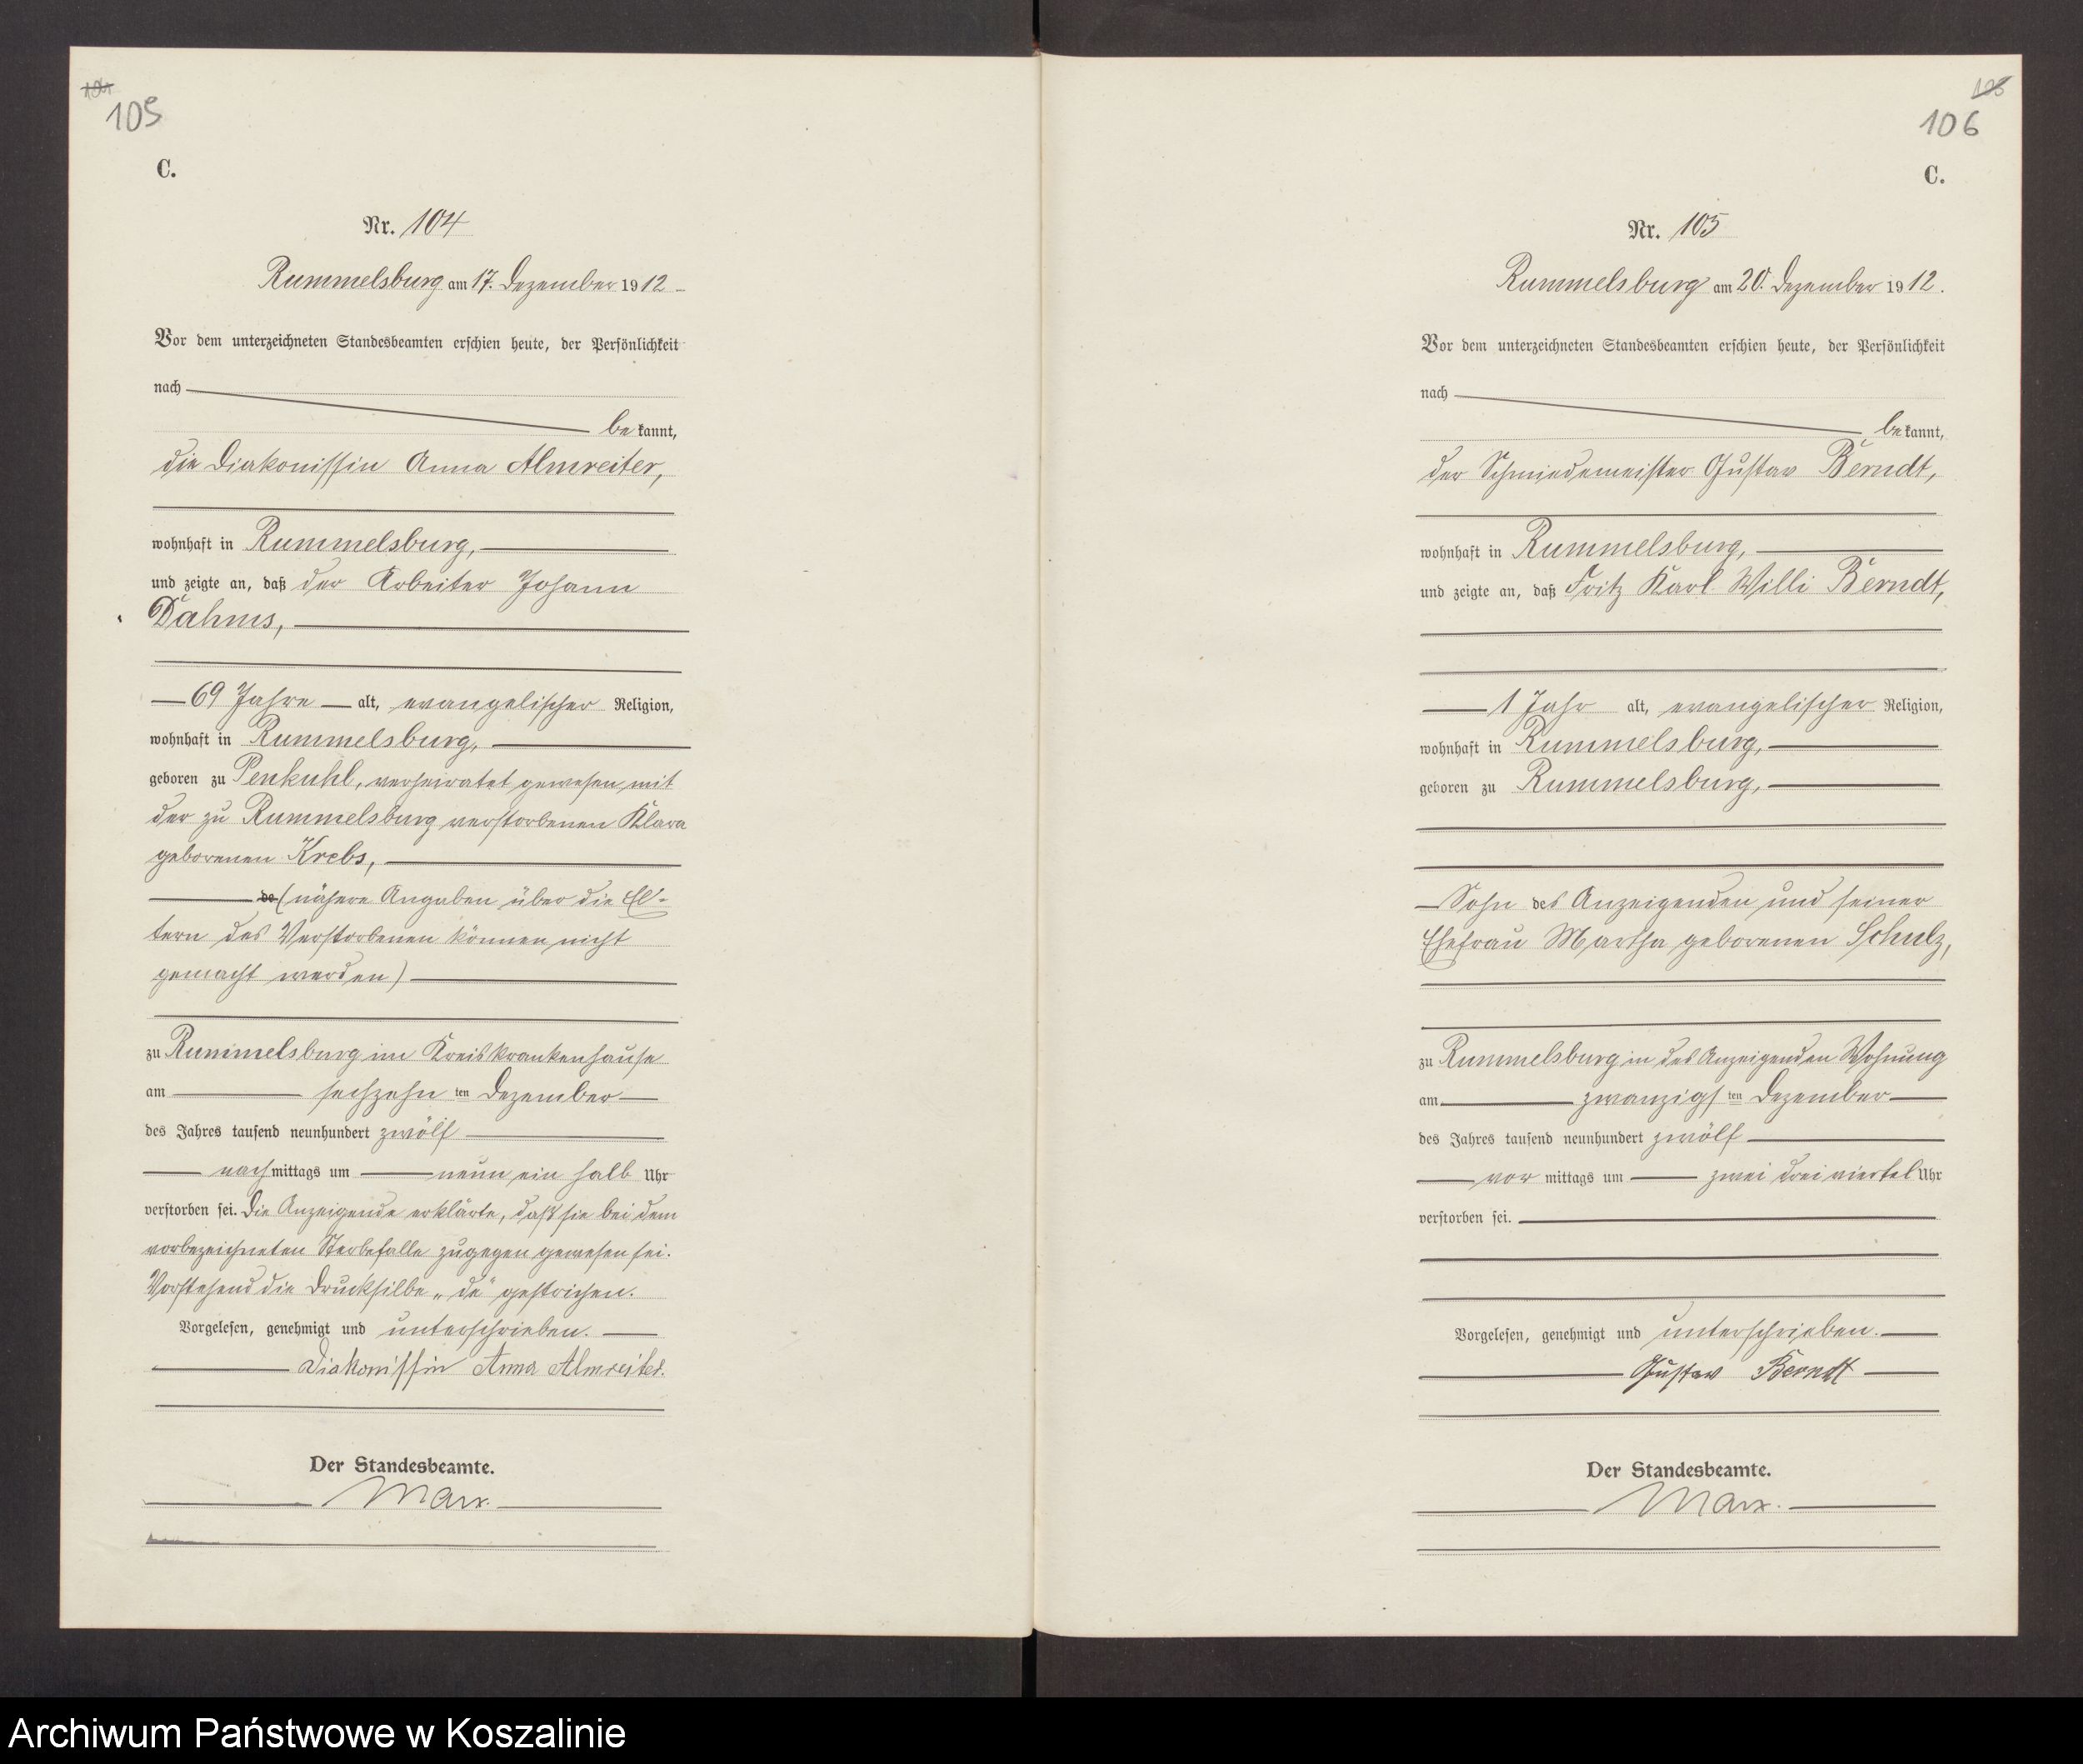 105
C.
Nr. 104
Rummelsburg am 17. Dezember 1912
Vor dem unterzeichneten Standesbeamten erschien heute, der Persönlichkeit
nach
bekannt,
die Diakonissin Anna Almreiter,
wohnhaft in Rummelsburg,
und zeigte an, daß der Arbeiter Johann
Dahms,
69 Jahre alt, evangelischer Religion,
wohnhaft in Rummelsburg,
geboren zu Penkuhl, verheiratet gewesen mit
der zu Rummelsburg verstorbenen Klara
geborenen Krebs,
de (nähere Angaben über die El-
tern des Verstorbenen können nicht
gemacht werden)
zu Rummelsburg im Kreiskrankenhause
am sechzehnten Dezember
des Jahres tausend neunhundert zwölf
nachmittags um neun ein halb Uhr
verstorben sei. Die Anzeigende erklärte, daß sie bei dem
vorbezeichneten Sterbefalle zugegen gewesen sei.
Vorstehend die Drucksilbe „de" gestrichen.
Vorgelesen, genehmigt und unterschrieben.
Diakonissin Anna Almreiter.
Der Standesbeamte.
Marx.
106
C.
Nr. 105
Rummelsburg am 20. Dezember 1912.
Vor dem unterzeichneten Standesbeamten erschien heute, der Persönlichkeit
nach
bekannt,
der Schmiedemeister Gustav Berndt,
wohnhaft in Rummelsburg,
und zeigte an, daß Fritz Karl Willi Berndt,
1 Jahr alt, evangelischer Religion,
wohnhaft in Rummelsburg,
geboren zu Rummelsburg,
Sohn des Anzeigenden und seiner
Ehefrau Martha geborenen Schulz,
zu Rummelsburg in des Anzeigenden Wohnung
am zwanzigsten Dezember
des Jahres tausend neunhundert zwölf
vor mittags um zwei drei viertel Uhr
verstorben sei.
Vorgelesen, genehmigt und unterschrieben.
Gustav Berndt
Der Standesbeamte.
Marx.
Archiwum Państwowe w Koszalinie